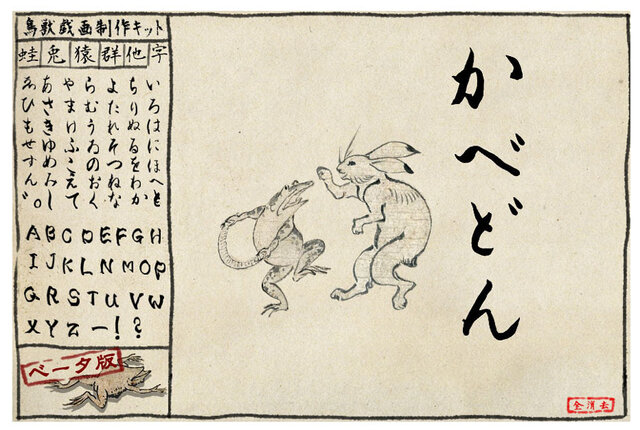 鳥獣戯画制作キット
蛙 兎 猿 群 他 字
いろはにほへと
ちりぬるをわか
よたれそつねな
らむうゐのおく
やまけふこえて
あさきゆめみし
ゑひもせすん゛。
A B C D E F G H
I J K L N M O P
Q R S T U V W
X Y Z ー ! ?
ベータ版
かべどん
全消去